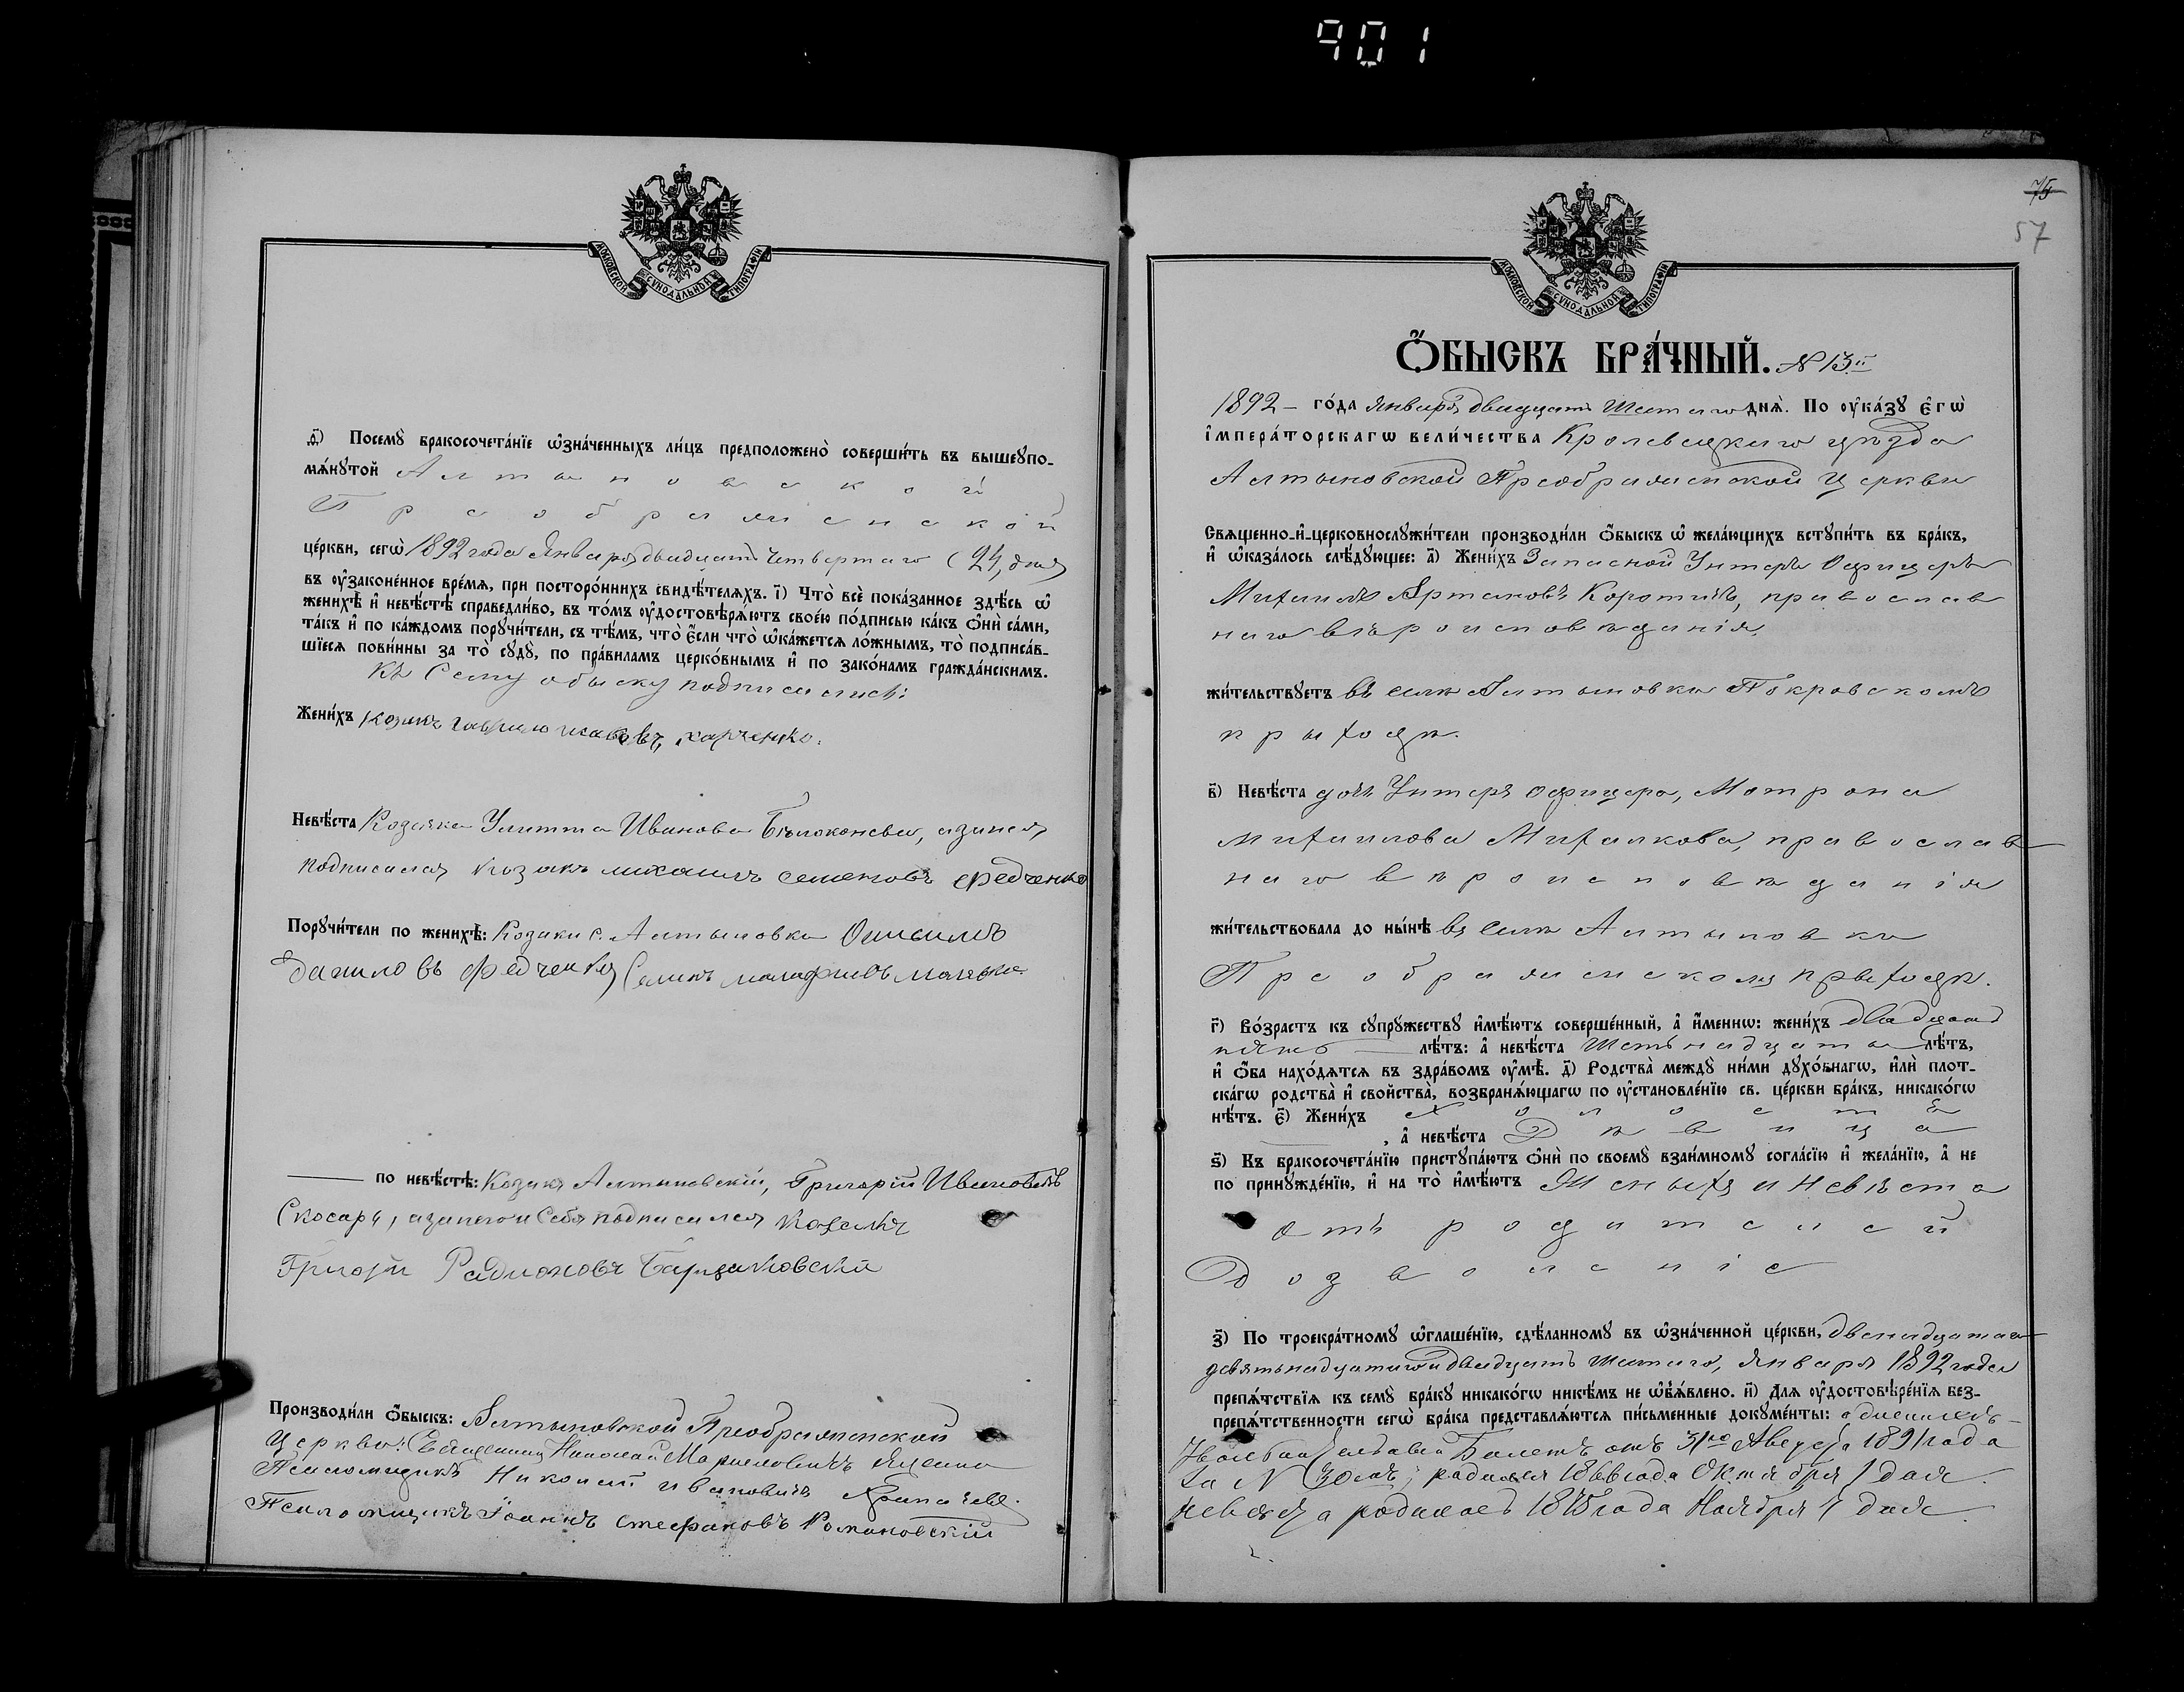 901
МОСКОВСКОЙ СѴНОДАЛЬНОЙ ТИПОГРАФІИ
д҃і) Посемꙋ̀ бракосочета́нїе ѡ҆зна́ченныхъ ли́цъ предположено̀ соверши́ть въ вышеꙋпо-
мѧ́нꙋтой Алтыновской
Преображенской
це́ркви, сегѡ̀ 1892 года Января двадцать четвертаго (24) дня
въ ᲂу҆законе́нное вре́мѧ, при посторо́ннихъ свидѣ́телѧхъ. і҃) Что̀ всѐ пока́занное здѣ́сь ѡ҆
женихѣ̀ и҆ невѣ́стѣ справедли́во, въ то́мъ ᲂу҆достовѣрѧ́ютъ свое́ю по́дписью ка́къ ѻ҆нѝ са́ми,
та́къ и҆ по ка́ждомъ порꙋчи́тели, съ тѣ́мъ, что̀ е҆́сли что̀ ѡ҆ка́жетсѧ ло́жнымъ, то̀ подписа́в-
шїесѧ пови́нны за то̀ сꙋдꙋ̀, по пра́виламъ церко́внымъ и҆ по зако́намъ гражда́нскимъ.
Къ Сему обыску подписались:
Жени́хъ козакъ гаврило иаковъ харченко.
Невѣ́ста Козачка Улитта Иванова Белоконева, азанея
подписался козакъ михаилъ семеновъ Федченко
Порꙋчи́тели по женихѣ̀: Козаки с. Алтыновки Онисимъ
даниловъ Федченко
по невѣ́стѣ: Козакъ Алтыновскій, Григорій Ивановъ
Скосарь, азанего и Себя подписался
Григорій Радионовъ
Производи́ли ѻ҆́быскъ: Алтыновской Преображенской
Церкви: Священникъ Николай
Псаломщикъ Николай ивановичъ
Псаломщикъ Іоаннъ Стефановъ Романовскій
75
57
МОСКОВСКОЙ СѴНОДАЛЬНОЙ ТИПОГРАФІИ
Ѻ҆́БЫСКЪ БРА́ЧНЫЙ. № 13й
1892 – го́да Января двадцать Шестаго днѧ̀. По ᲂу҆ка́зꙋ є҆гѡ̀
і҆мпера́торскагѡ вели́чества Кролевецкаго уѣзда
Алтыновской Преображенской Церкви
Свѧщенно-и҆-церковнослꙋжи́тели производи́ли ѻ҆́быскъ ѡ҆ жела́ющихъ встꙋпи́ть въ бра́къ,
и҆ ѡ҆каза́лось слѣ́дꙋющее: а҃) Жени́хъ Запасной Унтеръ Офицеръ
Михаилъ Артемовъ Коротичъ, православ
наго вѣроисповѣданія,
жи́тельствꙋетъ въ селѣ Алтыновкѣ Покровскомъ
приходѣ.
в҃) Невѣ́ста дочь Унтеръ офицера, Мотрона
Михаилова Михалкова, православ
наго вѣроисповѣданія
жи́тельствовала до ны́нѣ въ селѣ Алтыновкѣ
Преображенскомъ приходѣ.
г҃) Во́зрастъ къ сꙋпрꙋ́жествꙋ и҆мѣ́ютъ соверше́нный, а҆ и҆́меннѡ: жени́хъ двадцать
пять лѣ́тъ: а҆ невѣ́ста Шестьнадцать лѣ́тъ,
и҆ ѻ҆́ба нахо́дѧтсѧ въ здра́вомъ ᲂу҆мѣ̀. д҃) Родства̀ междꙋ̀ ни́ми дꙋхо́внагѡ, и҆лѝ плот-
ска́гѡ родства̀ и҆ сво́йства̀, возбранѧ́ющагѡ по ᲂу҆становле́нїю св. це́ркви бра́къ, никако́гѡ
нѣ́тъ. є҃) Жени́хъ Холостъ
, а҆ невѣ́ста Дѣвица
ѕ҃) Къ бракосочета́нїю пристꙋпа́ютъ ѻ҆нѝ по своемꙋ̀ взаи́мномꙋ согла́сїю и҆ жела́нїю, а҆ не
по принꙋжде́нїю, и҆ на то̀ и҆мѣ́ютъ Женихъ и Невѣста
отъ родителей
Дозволеніе
з҃) По троекра́тномꙋ ѡ҆глаше́нїю, сдѣ́ланномꙋ въ ѡ҆зна́ченной це́ркви, двенадцатаго
девятьнадцатаго и двадцать шестаго, января 1892 года
препѧ́тствїѧ къ семꙋ̀ бра́кꙋ никако́гѡ нике́мъ не ѡ҆б̾ѧ́влено. и҃) Для ᲂу҆достовѣре́нїѧ без-
препѧ́тственности сегѡ̀ бра́ка представлѧ́ютсѧ пи́сьменные докꙋме́нты:
Билетъ отъ 31го Августа 1891 года
за № 30мъ, родился 1866 года Октября 1 дня.
невеста родилась 1875 года Ноября 7 дня.